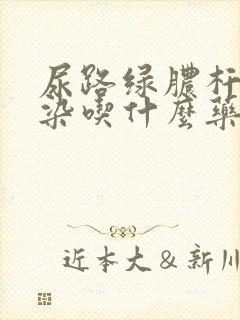 尿路绿膿杆
染喫什麼藥
近本大&新川